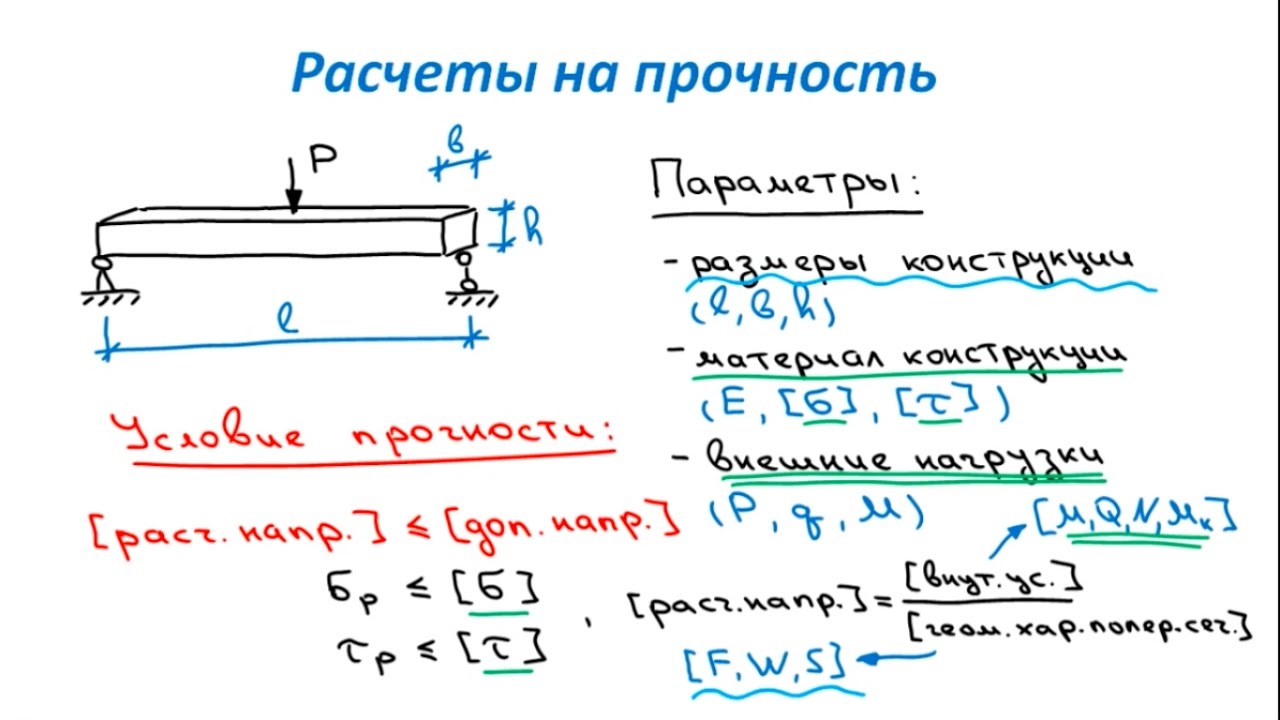 Расчеты на прочность
P
в
h
l
Параметры:
- размеры конструкции
(l, в, h)
- материал конструкции
(E, [б], [τ])
- внешние нагрузки
(P, q, M)
[M, Q, N, Mк]
Условие прочности:
[расч. напр.] ≤ [доп. напр.]
бр ≤ [б]
τр ≤ [τ]
, [расч. напр.] = [внут. ус.]
[геом. хар. попер. сеч.]
[F, W, S]